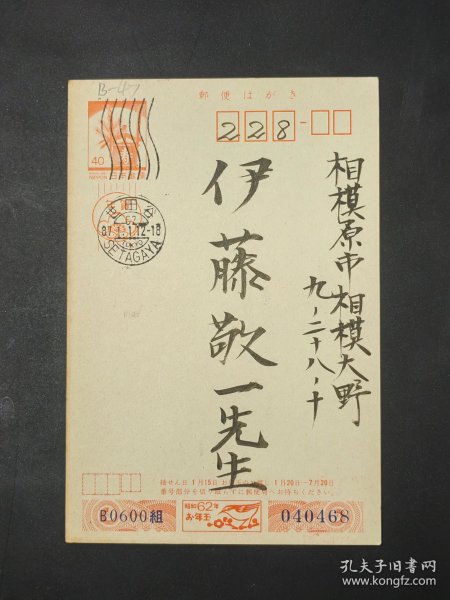 B-47
郵便はがき
228
40
NIPPON
相模原市相模大野
九-二十八-十
伊藤敬一先生
世田谷
87.1.1 12-18
TOKYO
SETAGAYA
抽せん日 1月15日 お年玉のお渡し 1月20日-7月20日
番号部分を切り取らずに郵便局へお持ちください。
B0600組
昭和62年
お年玉
040468
孔夫子旧书网
www.kongfz.com